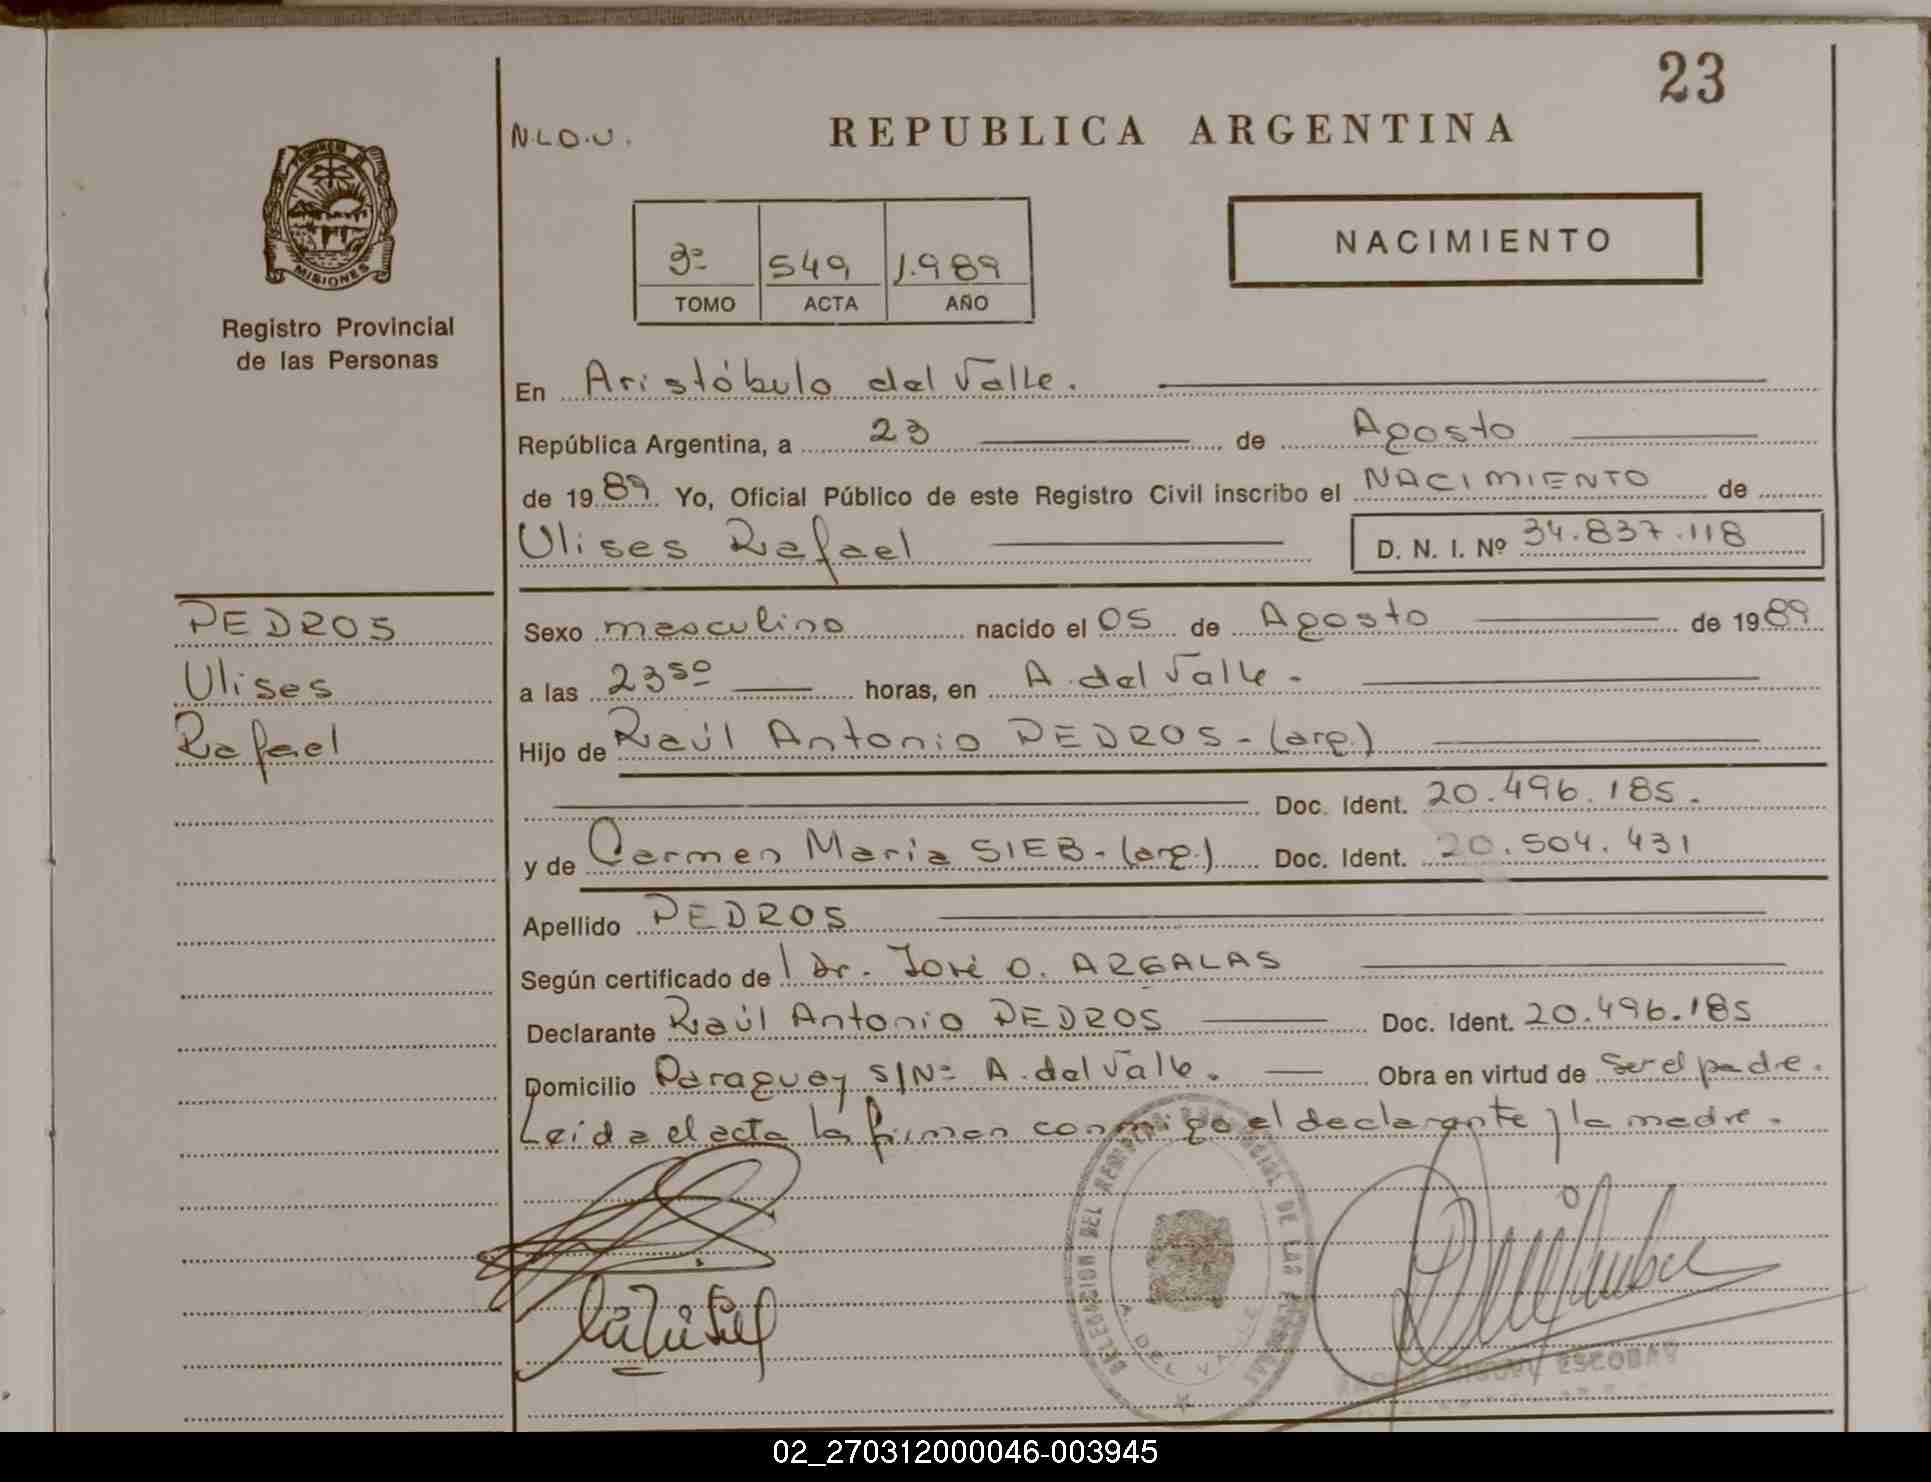 23
N.L.O.U.
REPUBLICA ARGENTINA
PROVINCIA DE
MISIONES
Registro Provincial
de las Personas
3º 549 1.989
TOMO ACTA AÑO
NACIMIENTO
En Aristóbulo del Valle.
República Argentina, a 23 de Agosto
de 1989 Yo, Oficial Público de este Registro Civil inscribo el NACIMIENTO de
Ulises Rafael D. N. I. Nº 34.837.118
PEDROS
Ulises
Rafael
Sexo masculino nacido el 05 de Agosto de 1989
a las 23⁵⁰ horas, en A. del Valle.
Hijo de Raúl Antonio PEDROS - (arg.)
Doc. Ident. 20.496.185.
y de Carmen Maria SIEB - (arg.) Doc. Ident. 20.504.431
Apellido PEDROS
Según certificado de l Dr. José O. ARGALAS
Declarante Raúl Antonio PEDROS Doc. Ident. 20.496.185
Domicilio Paraguay S/Nº A. del Valle. Obra en virtud de ser el padre.
Leida el acta la firman conmigo el declarante y la madre.
DELEGACION REGISTRO PROVINCIAL DE LAS PERSONAS
A. DEL VALLE
MIGUEL ESCOBAR
02_270312000046-003945